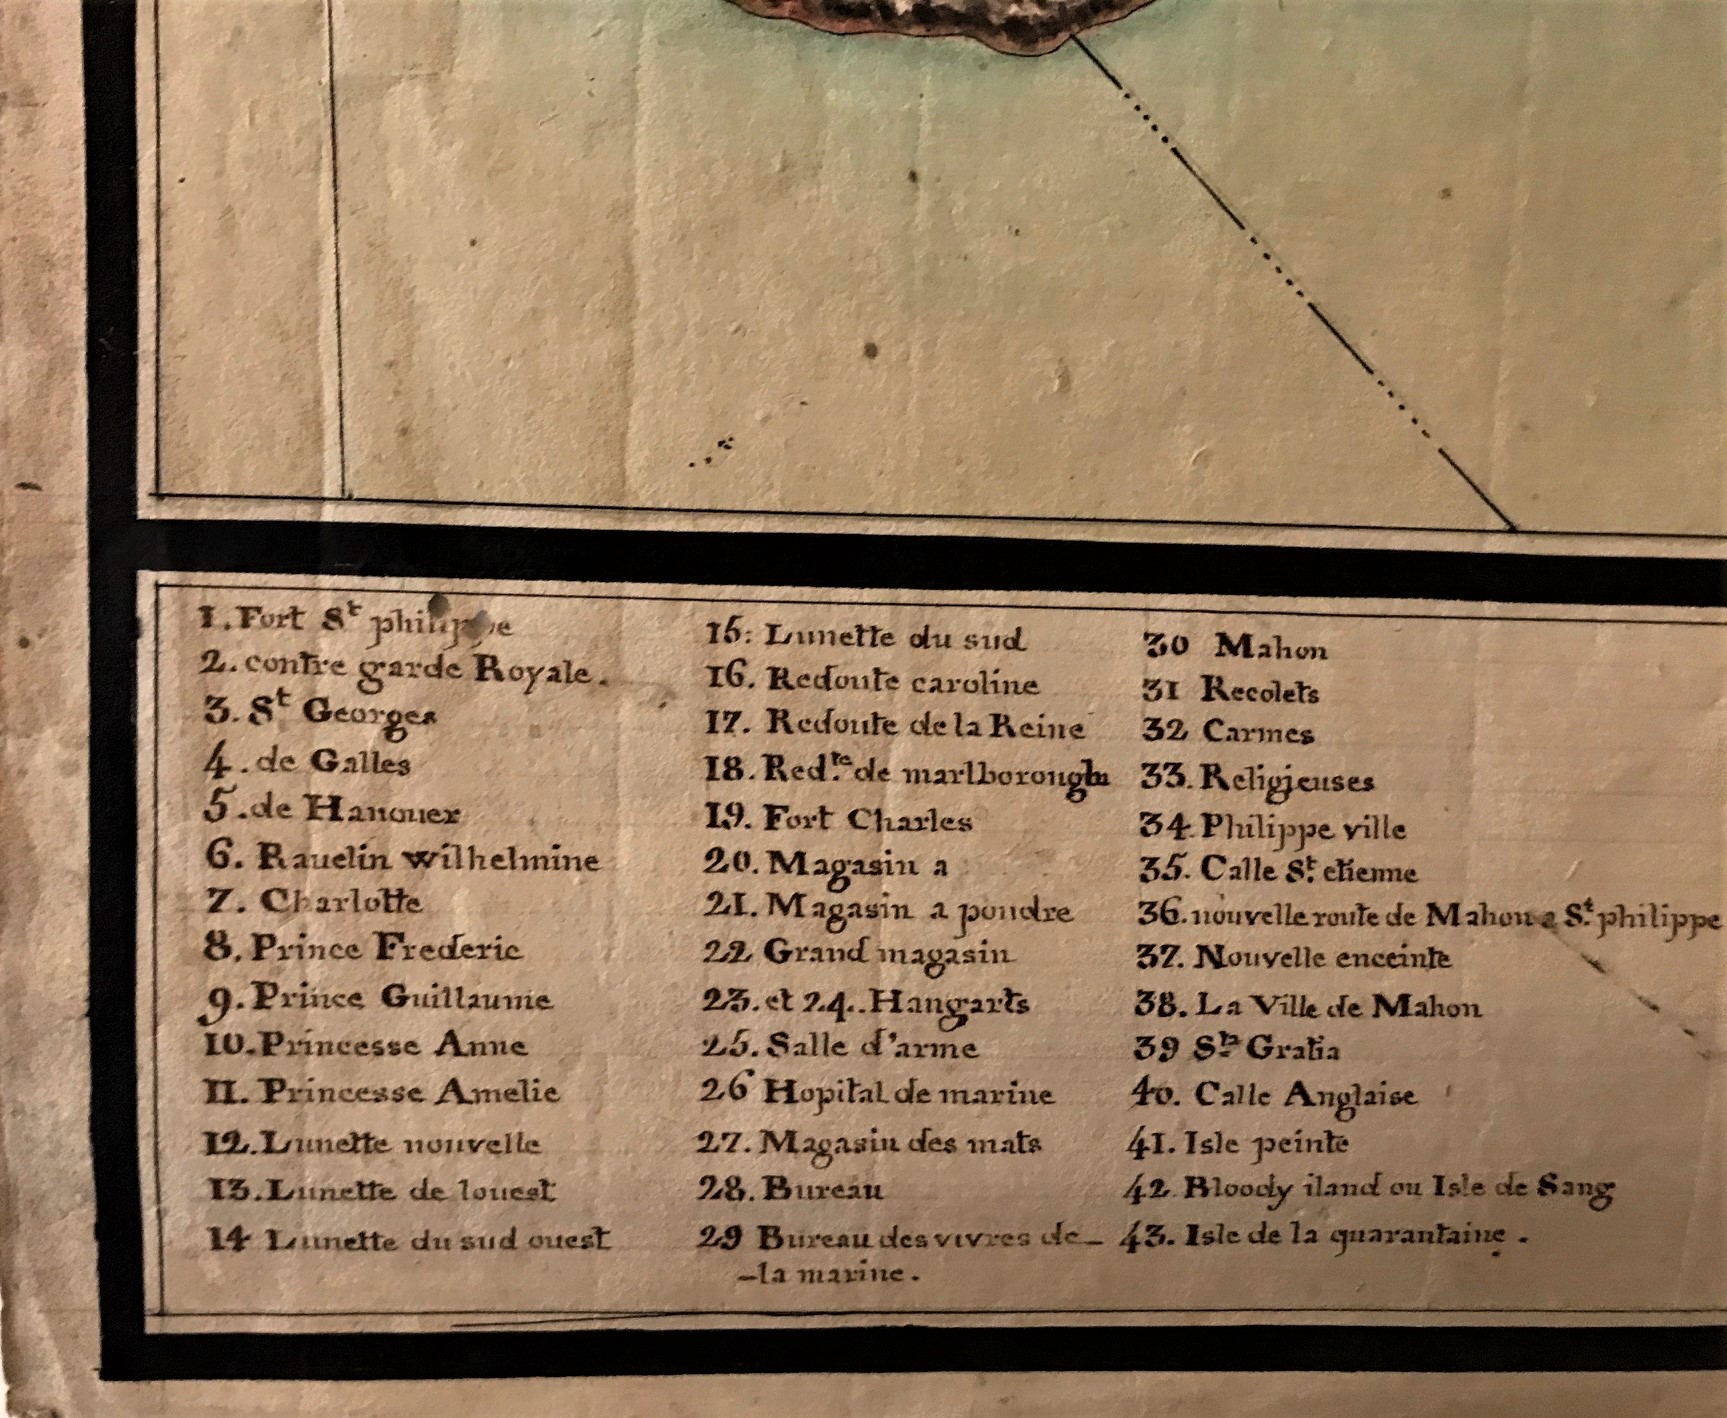 1. Fort St philippe
2. contre garde Royale.
3. St Georges
4. de Galles
5. de Hanouer
6. Rauelin wilhelmine
7. Charlotte
8. Prince Frederic
9. Prince Guillaume
10. Princesse Anne
11. Princesse Amelie
12. Lunette nouvelle
13. Lunette de louest
14 Lunette du sud ouest
15: Lunette du sud
16. Redoute caroline
17. Redoute de la Reine
18. Red.te de marlborough
19. Fort Charles
20. Magasin a
21. Magasin a poudre
22 Grand magasin
23. et 24.. Hangarts
25. Salle d'arme
26 Hopital de marine
27. Magasin des mats
28. Bureau
29 Bureau des vivres de_
_la marine.
30 Mahon
31 Recolets
32 Carmes
33. Religieuses
34. Philippe ville
35. Calle St. etienne
36. nouvelle route de Mahon a St. philippe
37. Nouvelle enceinte
38. La Ville de Mahon
39 Sta Gratia
40. Calle Anglaise
41. Isle peinte
42. Bloody iland ou Isle de Sang
43. Isle de la quarantaine.